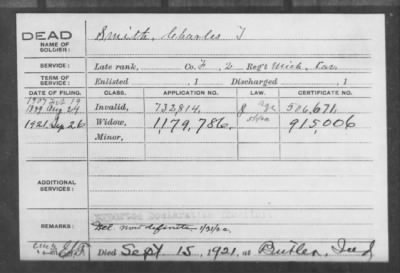 DEAD
NAME OF SOLDIER: Smith, Charles T
SERVICE: Late rank, Co. F, 2 Reg't Mich. Cav
TERM OF SERVICE: Enlisted , 1 Discharged , 1
DATE OF FILING. CLASS. APPLICATION NO. LAW. CERTIFICATE NO.
1907 Feb 19
Aug 24 Invalid, 732,814, age 506,671,
1921, Sep 26 Widow, 1,179,786, 915,006
Minor,
ADDITIONAL SERVICES:
REMARKS: now definite 1/31/22
Died Sept 15, 1921, at Butler, Ind